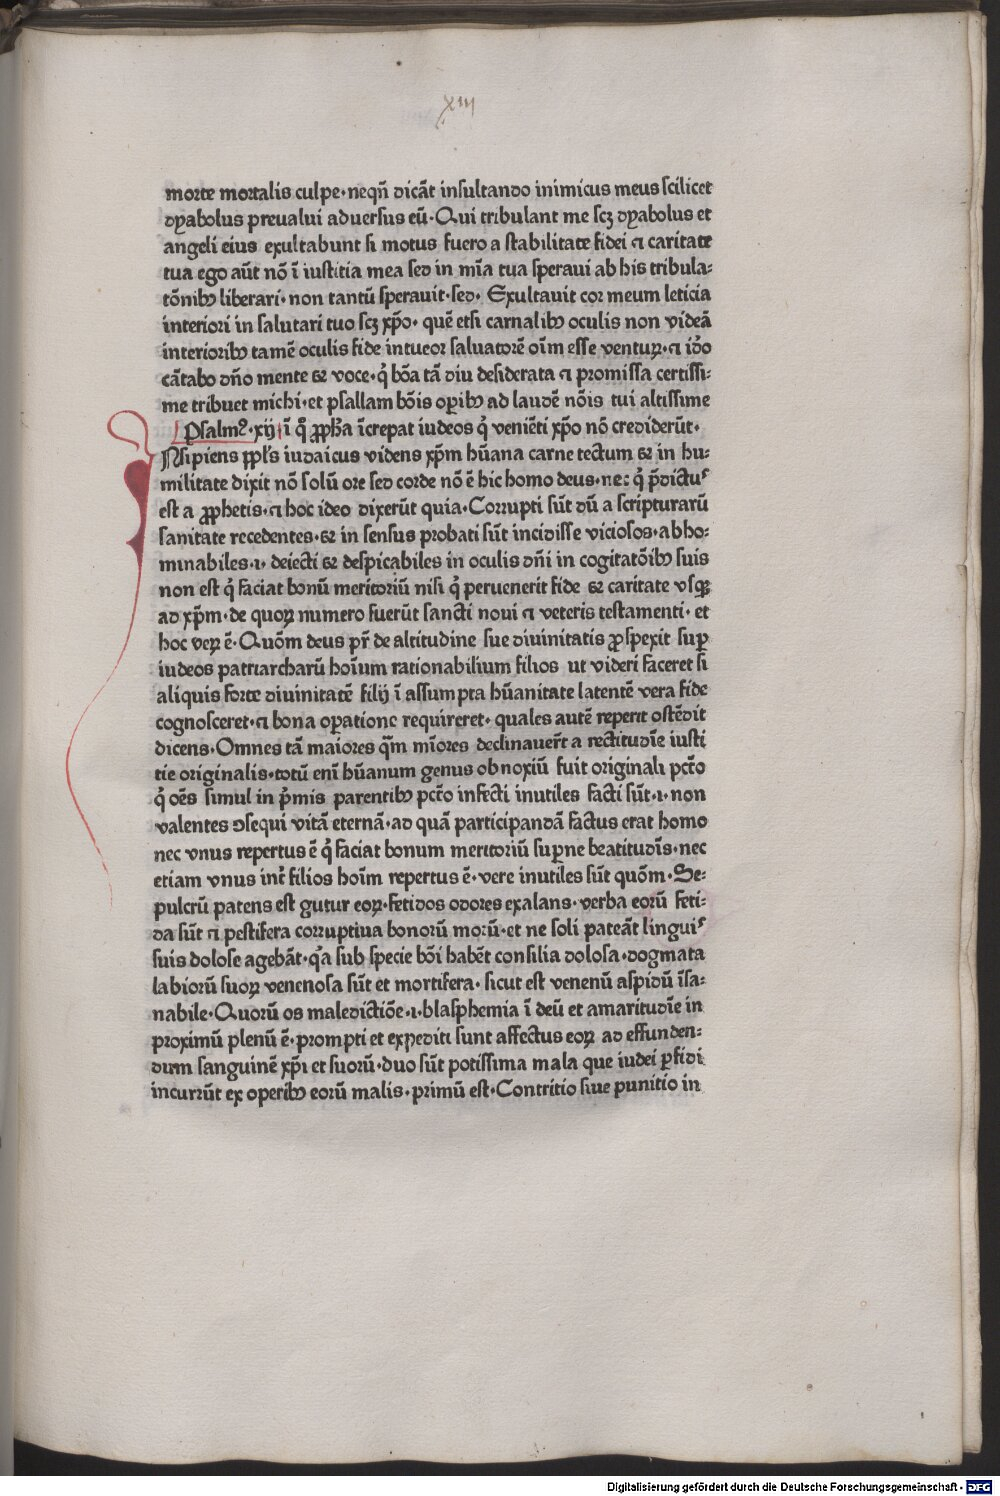 xiij
morte mortalis culpe·neqn̄ dicāt insultando inimicus meus scilicet
dyabolus preualui aduersus eū·Qui tribulant me scꝫ dyabolus et
angeli eius exultabunt si motus fuero a stabilitate fidei ⁊ caritate
tua ego aūt nō ī iustitia mea sed in mīa tua speraui ab his tribula:
tōnibꝰ liberari·non tantū sperauit·sed·Exultauit cor meum leticia
interiori in salutari tuo scꝫ xp̄o·quē etsi carnalibꝰ oculis non videā
interioribꝰ tamē oculis fide intueor saluatorē oīm esse venturꝝ·⁊ id̄o
cātabo dn̄o mente ⁊ voce·q̇ bōa tā diu desiderata ⁊ promissa certissi:
me tribuet michi·et psallam bōis oꝑibꝰ ad laudē nōis tui altissime
Psalmꝰ·xij·ī qͦ ꝓph̄a īcrepat iudeos q̇ veniēti xp̄o nō crediderūt·
Nsipiens ppl̄s iudaicus videns xp̄m hūana carne tectum ⁊ in hu:
militate dixit nō solū ore sed corde nō ē hic homo deus·nec q̇ p̄dictuˢ
est a ꝓphetis·⁊ hoc ideo dixerūt quia·Corrupti sūt dū a scripturarū
sanitate recedentes·⁊ in sensus probati sūt incidisse viciosos·abho:
minabiles·i·deiecti ⁊ despicabiles in oculis dn̄i in cogitatōibꝰ suis
non est q̇ faciat bonū meritoriū nisi q̇ peruenerit fide ⁊ caritate vsqꝫ
ad xp̄m·de quoꝝ numero fuerūt sancti noui ⁊ veteris testamenti·et
hoc veꝝ ē·Quōm deus pr̄ de altitudine sue diuinitatis ꝓspexit suꝑ
iudeos patriarcharū hoīum rationabilium filios ut videri faceret si
aliquis forte diuinitatē filij ī assumpta hūanitate latentē vera fide
cognosceret·⁊ bona oꝑatione requireret·quales autē reperit ostēdit
dicens·Omnes tā maiores qm̄ mīores declinauer̄t a rectitudīe iusti
tie originalis·totū enī hūanum genus obnoxiū fuit originali pctō
q̇ oēs simul in p̄mis parentibꝰ pctō infecti inutiles facti sūt·i·non
valentes ꝯsequi vitā eternā·ad quā participandā factus erat homo
nec vnus repertus ē q̇ faciat bonum meritoriū suꝑne beatitudīs·nec
etiam vnus int̄ filios hoīm repertus ē·vere inutiles sūt quōm·Se:
pulcrū patens est gutur eoꝝ·fetidos odores exalans·verba eorū feti:
da sūt ⁊ pestifera corruptiua bonorū morū·et ne soli pateāt linguiˢ
suis dolose agebāt·qa̅ sub specie bōi habēt consilia dolosa·dogmata
labiorū suoꝝ venenosa sūt et mortifera·sicut est venenū aspidū īsa:
nabile·Quorū os maledictiōe·i·blasphemia ī deū et amaritudīe in
proximū plenū ē·prompti et expediti sunt affectus eoꝝ ad effunden:
dum sanguinē xp̄i et suorū·duo sūt potissima mala que iudei ꝑfidi
incurrūt ex operibꝰ eorū malis·primū est·Contritio siue punitio in
Digitalisierung gefördert durch die Deutsche Forschungsgemeinschaft - DFG